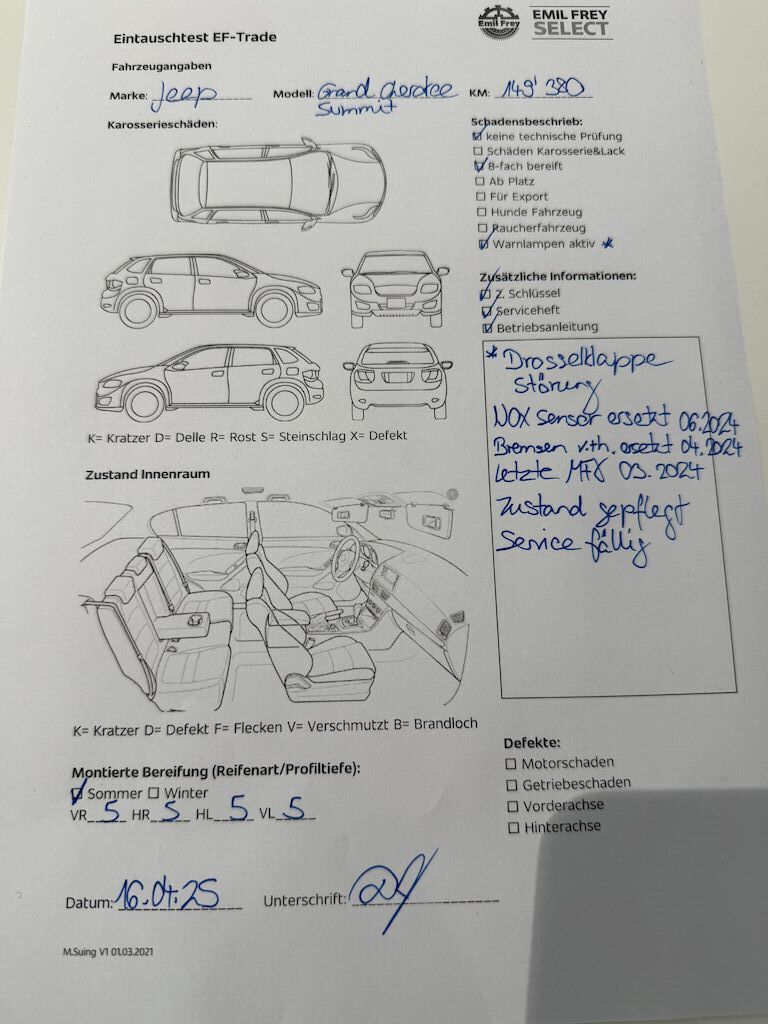 Emil Frey
EMIL FREY
SELECT
Eintauschtest EF-Trade
Fahrzeugangaben
Marke: Jeep Modell: Grand Cherokee Summit KM: 149'380
Karosserieschäden:
Schadensbeschrieb:
keine technische Prüfung
Schäden Karosserie&Lack
8-fach bereift
Ab Platz
Für Export
Hunde Fahrzeug
Raucherfahrzeug
Warnlampen aktiv *
Zusätzliche Informationen:
2. Schlüssel
Serviceheft
Betriebsanleitung
* Drosselklappe
Störung
NOX sensor ersetzt 06.2024
Bremsen v.th. ersetzt 04.2024
Letzte MFK 03.2024
Zustand gepflegt
Service fällig
K= Kratzer D= Delle R= Rost S= Steinschlag X= Defekt
Zustand Innenraum
K= Kratzer D= Defekt F= Flecken V= Verschmutzt B= Brandloch
Montierte Bereifung (Reifenart/Profiltiefe):
Sommer Winter
VR 5 HR 5 HL 5 VL 5
Defekte:
Motorschaden
Getriebeschaden
Vorderachse
Hinterachse
Datum: 16.04.25 Unterschrift:
M.Suing V1 01.03.2021